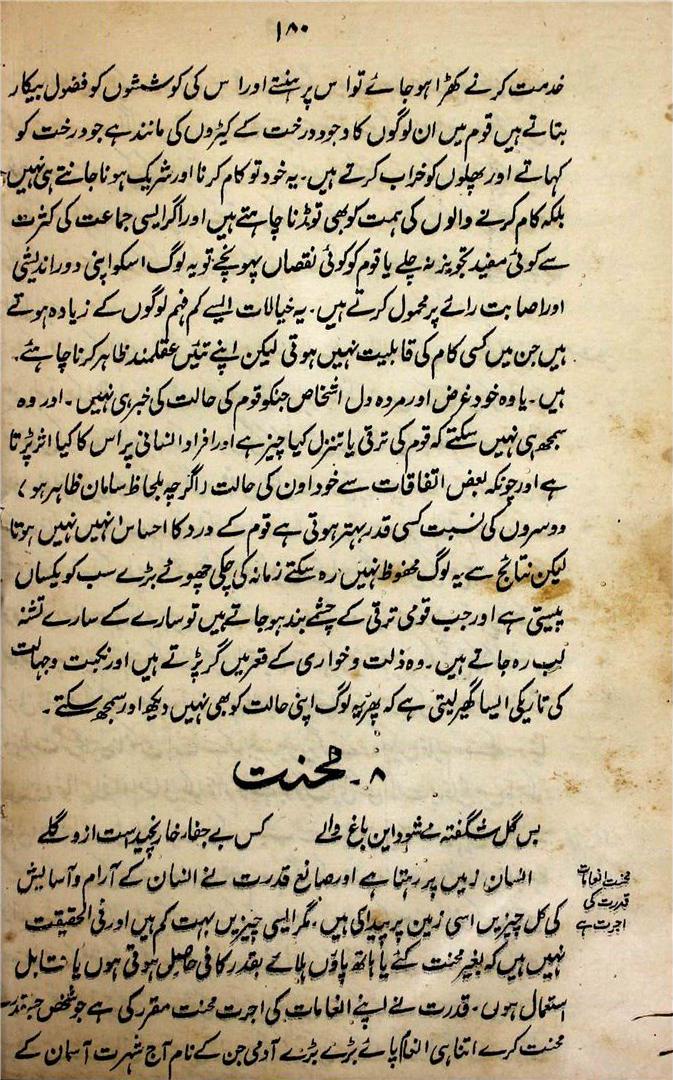 ۱۸۰
خدمت کرنے کھڑا ہو جائے تو اس پر ہنستے اور اس کی کوششوں کو فضول بیکار
بتاتے ہیں قوم میں ان لوگوں کا وجود درخت کے کیڑوں کی مانند ہے جو درخت کو
کہاتے اور پھلوں کو خراب کرتے ہیں۔ یہ خود تو کام کرنا اور شریک ہونا جانتے ہی نہیں
بلکہ کام کرنے والوں کی ہمت کو بھی توڑنا چاہتے ہیں اور اگر ایسی جماعت کی کثرت
سے کوئی مفید تجویز نہ چلے یا قوم کو کوئی نقصاں پہونچے تو یہ لوگ اسکو اپنی دور اندیشی
اور اصابت رائے پر محمول کرتے ہیں۔ یہ خیالات ایسے کم فہم لوگوں کے زیادہ ہوتے
ہیں جن میں کسی کام کی قابلیت نہیں ہوتی لیکن اپنے تئیں عقلمند ظاہر کرنا چاہتے
ہیں۔ یا وہ خود غرض اور مردہ دل اشخاص جنکو قوم کی حالت کی خبر ہی نہیں۔ اور وہ
سمجھ ہی نہیں سکتے کہ قوم کی ترقی یا تنزل کیا چیز ہے اور افراد انسانی پر اس کا کیا اثر پڑتا
ہے اور چونکہ بعض اتفاقات سے خود اون کی حالت (اگرچہ بلحاظ سامان ظاہر ہو)
دوسروں کی نسبت کسی قدر بہتر ہوتی ہے قوم کے درد کا احساس انہیں نہیں ہوتا
لیکن نتائج سے یہ لوگ محفوظ نہیں رہ سکتے زمانہ کی چکی چھوٹے بڑے سب کو یکساں
پیستی ہے اور جب قومی ترقی کے چشمے بند ہو جاتے ہیں تو سارے کے سارے تشنہ
لب رہ جاتے ہیں۔ وہ ذلت و خواری کے قعر میں گر پڑتے ہیں اور نکبت و جہالت
کی تاریکی ایسا گھیر لیتی ہے کہ پھر یہ لوگ اپنی حالت کو بھی نہیں دیکھ اور سمجھ سکتے۔
۸۔ محنت
بس گل شگفتہ مے شود این باغ والے کس بے جفار خار نچیدست ازو گلے
انسان زمیں پر رہتا ہے اور صانع قدرت نے انسان کے آرام و آسایش
محنت انعامات قدرت کی اجرت ہے
کی کل چیزیں اسی زمین پر پیدا کی ہیں۔ مگر ایسی چیزیں بہت کم ہیں اور فی الحقیقت
نہیں ہیں کہ بغیر محنت کئے یا ہاتھ پاؤں ہلائے بقدر کافی حاصل ہوتی ہوں یا قابل
استمال ہوں۔ قدرت نے اپنے انعامات کی اجرت محنت مقرر کی ہے جو شخص جسقدر
محنت کرے اتنا ہی انعام پائے بڑے بڑے آدمی جن کے نام آج شہرت آسمان کے